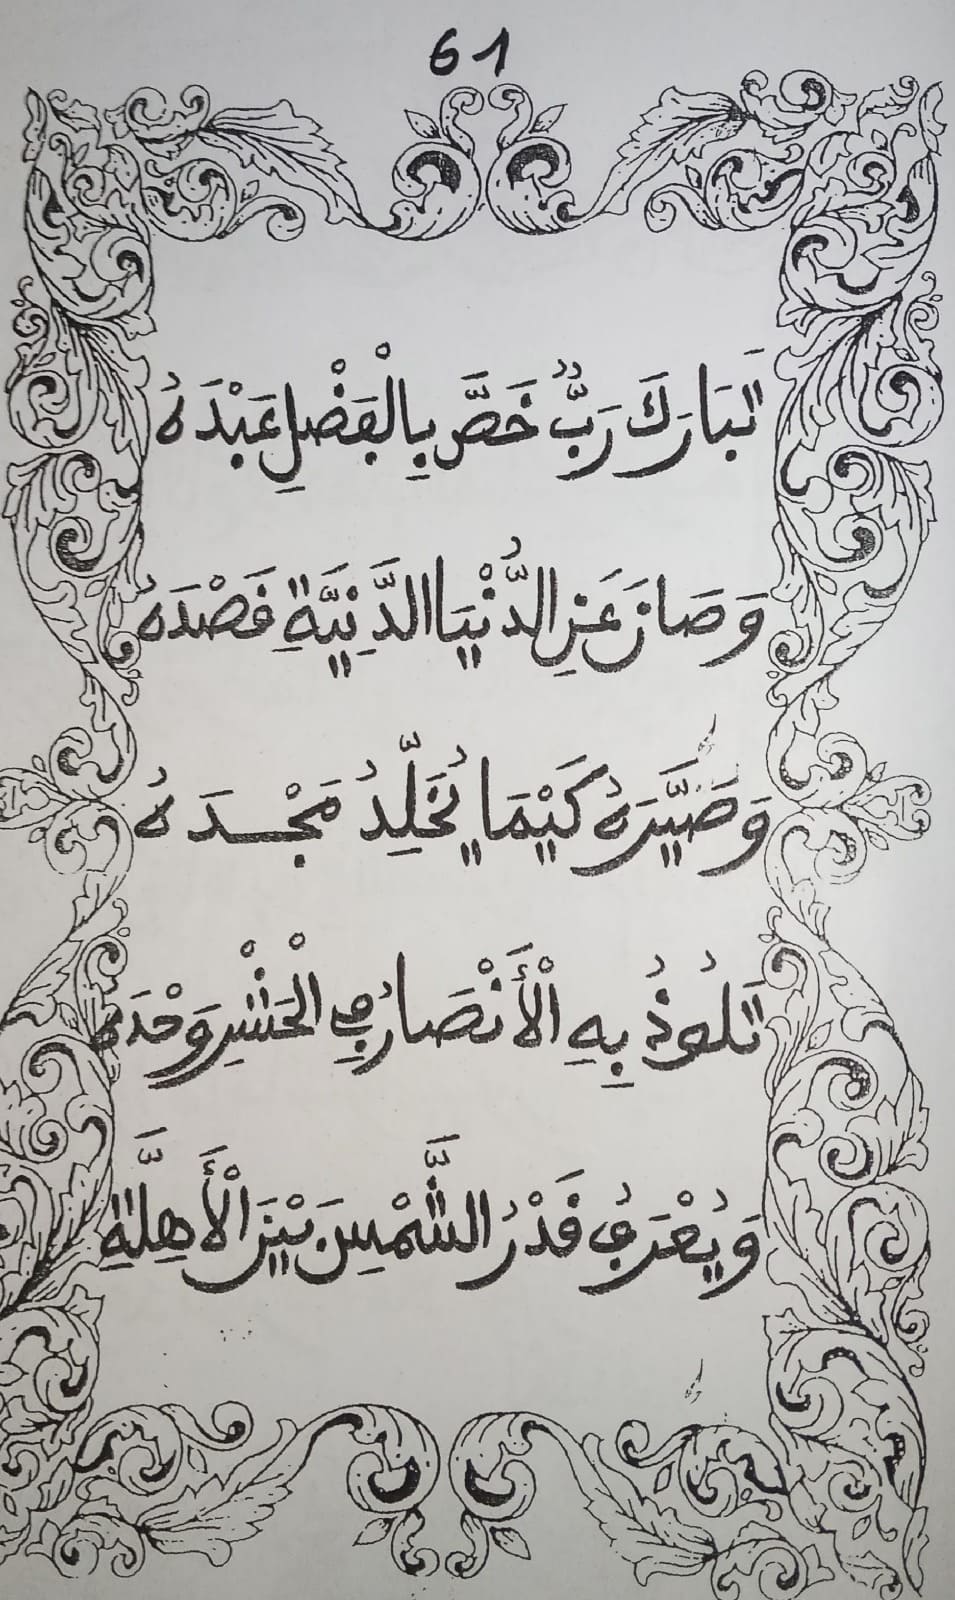 61
تَبَارَكَ رَبٌّ خَصَّ بِالْفَضْلِ عَبْدَهُ
وَصَانَ عَنِ الدُّنْيَا الدَّنِيَّةِ قَصْدَهُ
وَصَيَّرَهُ كَيْمَا يُخَلِّدُ مَجْدَهُ
تَلُوذُ بِهِ الْأَنْصَارُ فِي الْحَشْرِ وَحْدَهُ
وَيُعْرَفُ قَدْرُ الشَّمْسِ بَيْنَ الْأَهِلَّةِ